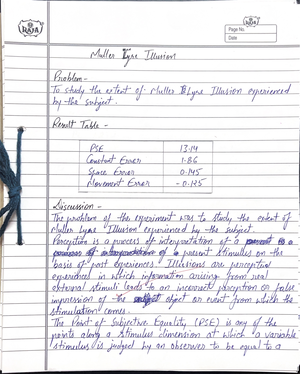 RAJA
RAJA
Page No.
Date
Muller Lyre Illusion
Problem -
To study the extent of Muller Lyre Illusion experienced
by the subject.
Result Table -
PSE 13.14
Constant Error 1.86
Space Error 0.145
Movement Error - 0.125
Discussion -
The problem of the experiment was to study the extent of
Muller Lyre Illusion experienced by the subject.
Perception is a process of interpretation of a present is a
process of interpretation of a present stimulus on the
basis of past experiences. Illusions are perceptive
experiences in which information arising from real
external stimuli leads to an incorrect perception or false
impression of the object or event from which the
stimulation comes.
The Point of Subjective Equality (PSE) is any of the
points along a stimulus dimension at which a variable
stimulus is judged by an observer to be equal to a